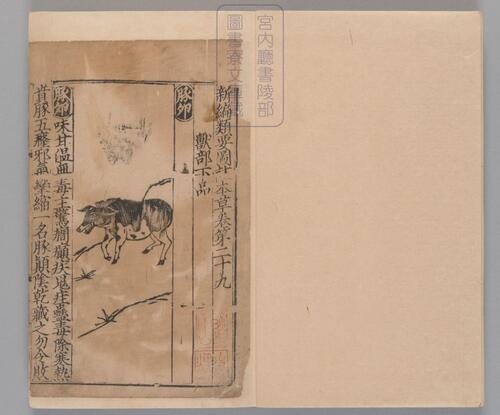 宮内廳書陵部
圖書寮文庫
新編類要圖註本草卷第二十九
獸部下品
豚卵
豚卵味甘温無毒主驚癇癲疾鬼疰蠱毒除寒熱
賁豚五癃邪氣攣縮一名豚顛陰乾藏之勿令敗